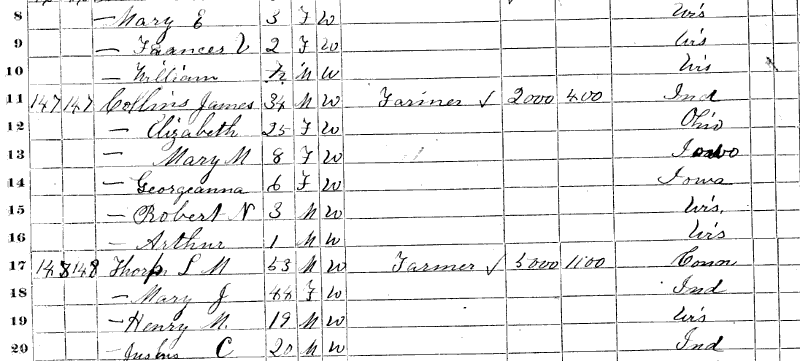 8 — Mary E 3 F W Wis
9 — Frances V 2 F W Wis
10 — William M W Wis
11 147 147 Collins James 34 M W Farmer ✓ 2000 400 Ind
12 — Elizabeth 25 F W Ohio
13 — Mary M 8 F W
14 — Georgeanna 6 F W Iowa
15 — Robert N 3 M W Wis.
16 — Arthur 1 M W Wis
17 148 148 Thorp L M 53 M W Farmer ✓ 5000 1100 Conn
18 — Mary J 44 F W Ind
19 — Henry M. 19 M W Wis
20 — C 20 M W Ind